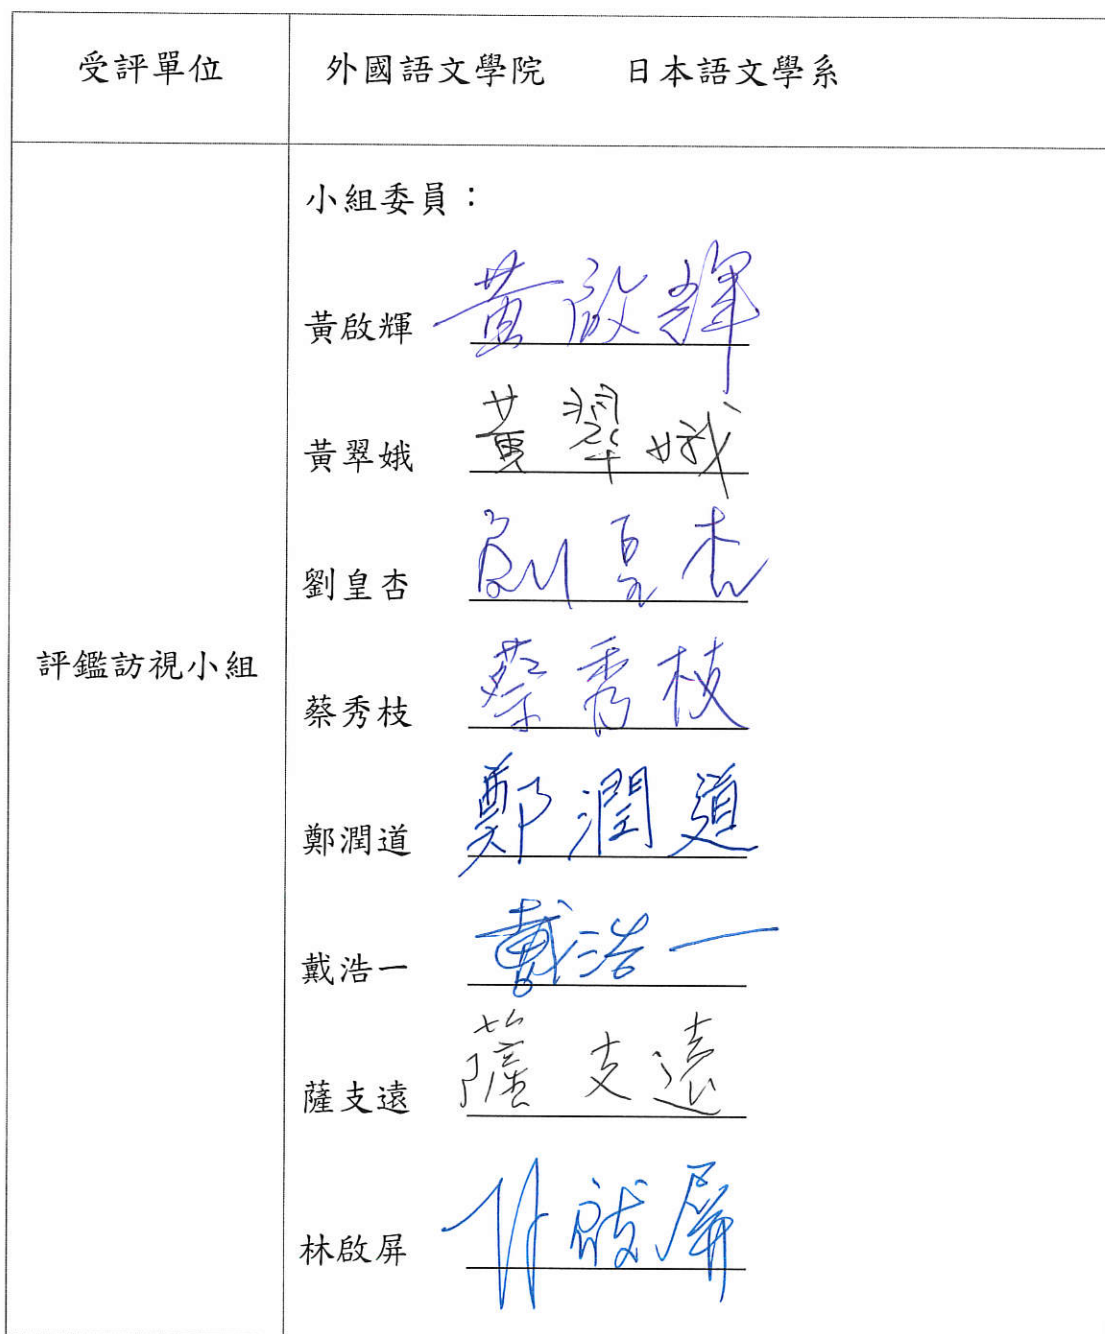 受評單位 外國語文學院 日本語文學系
評鑑訪視小組
小組委員：
黃啟輝 黃啟輝
黃翠娥 黃翠娥
劉皇杏 劉皇杏
蔡秀枝 蔡秀枝
鄭潤道 鄭潤道
戴浩一 戴浩一
薩支遠 薩支遠
林啟屏 林啟屏